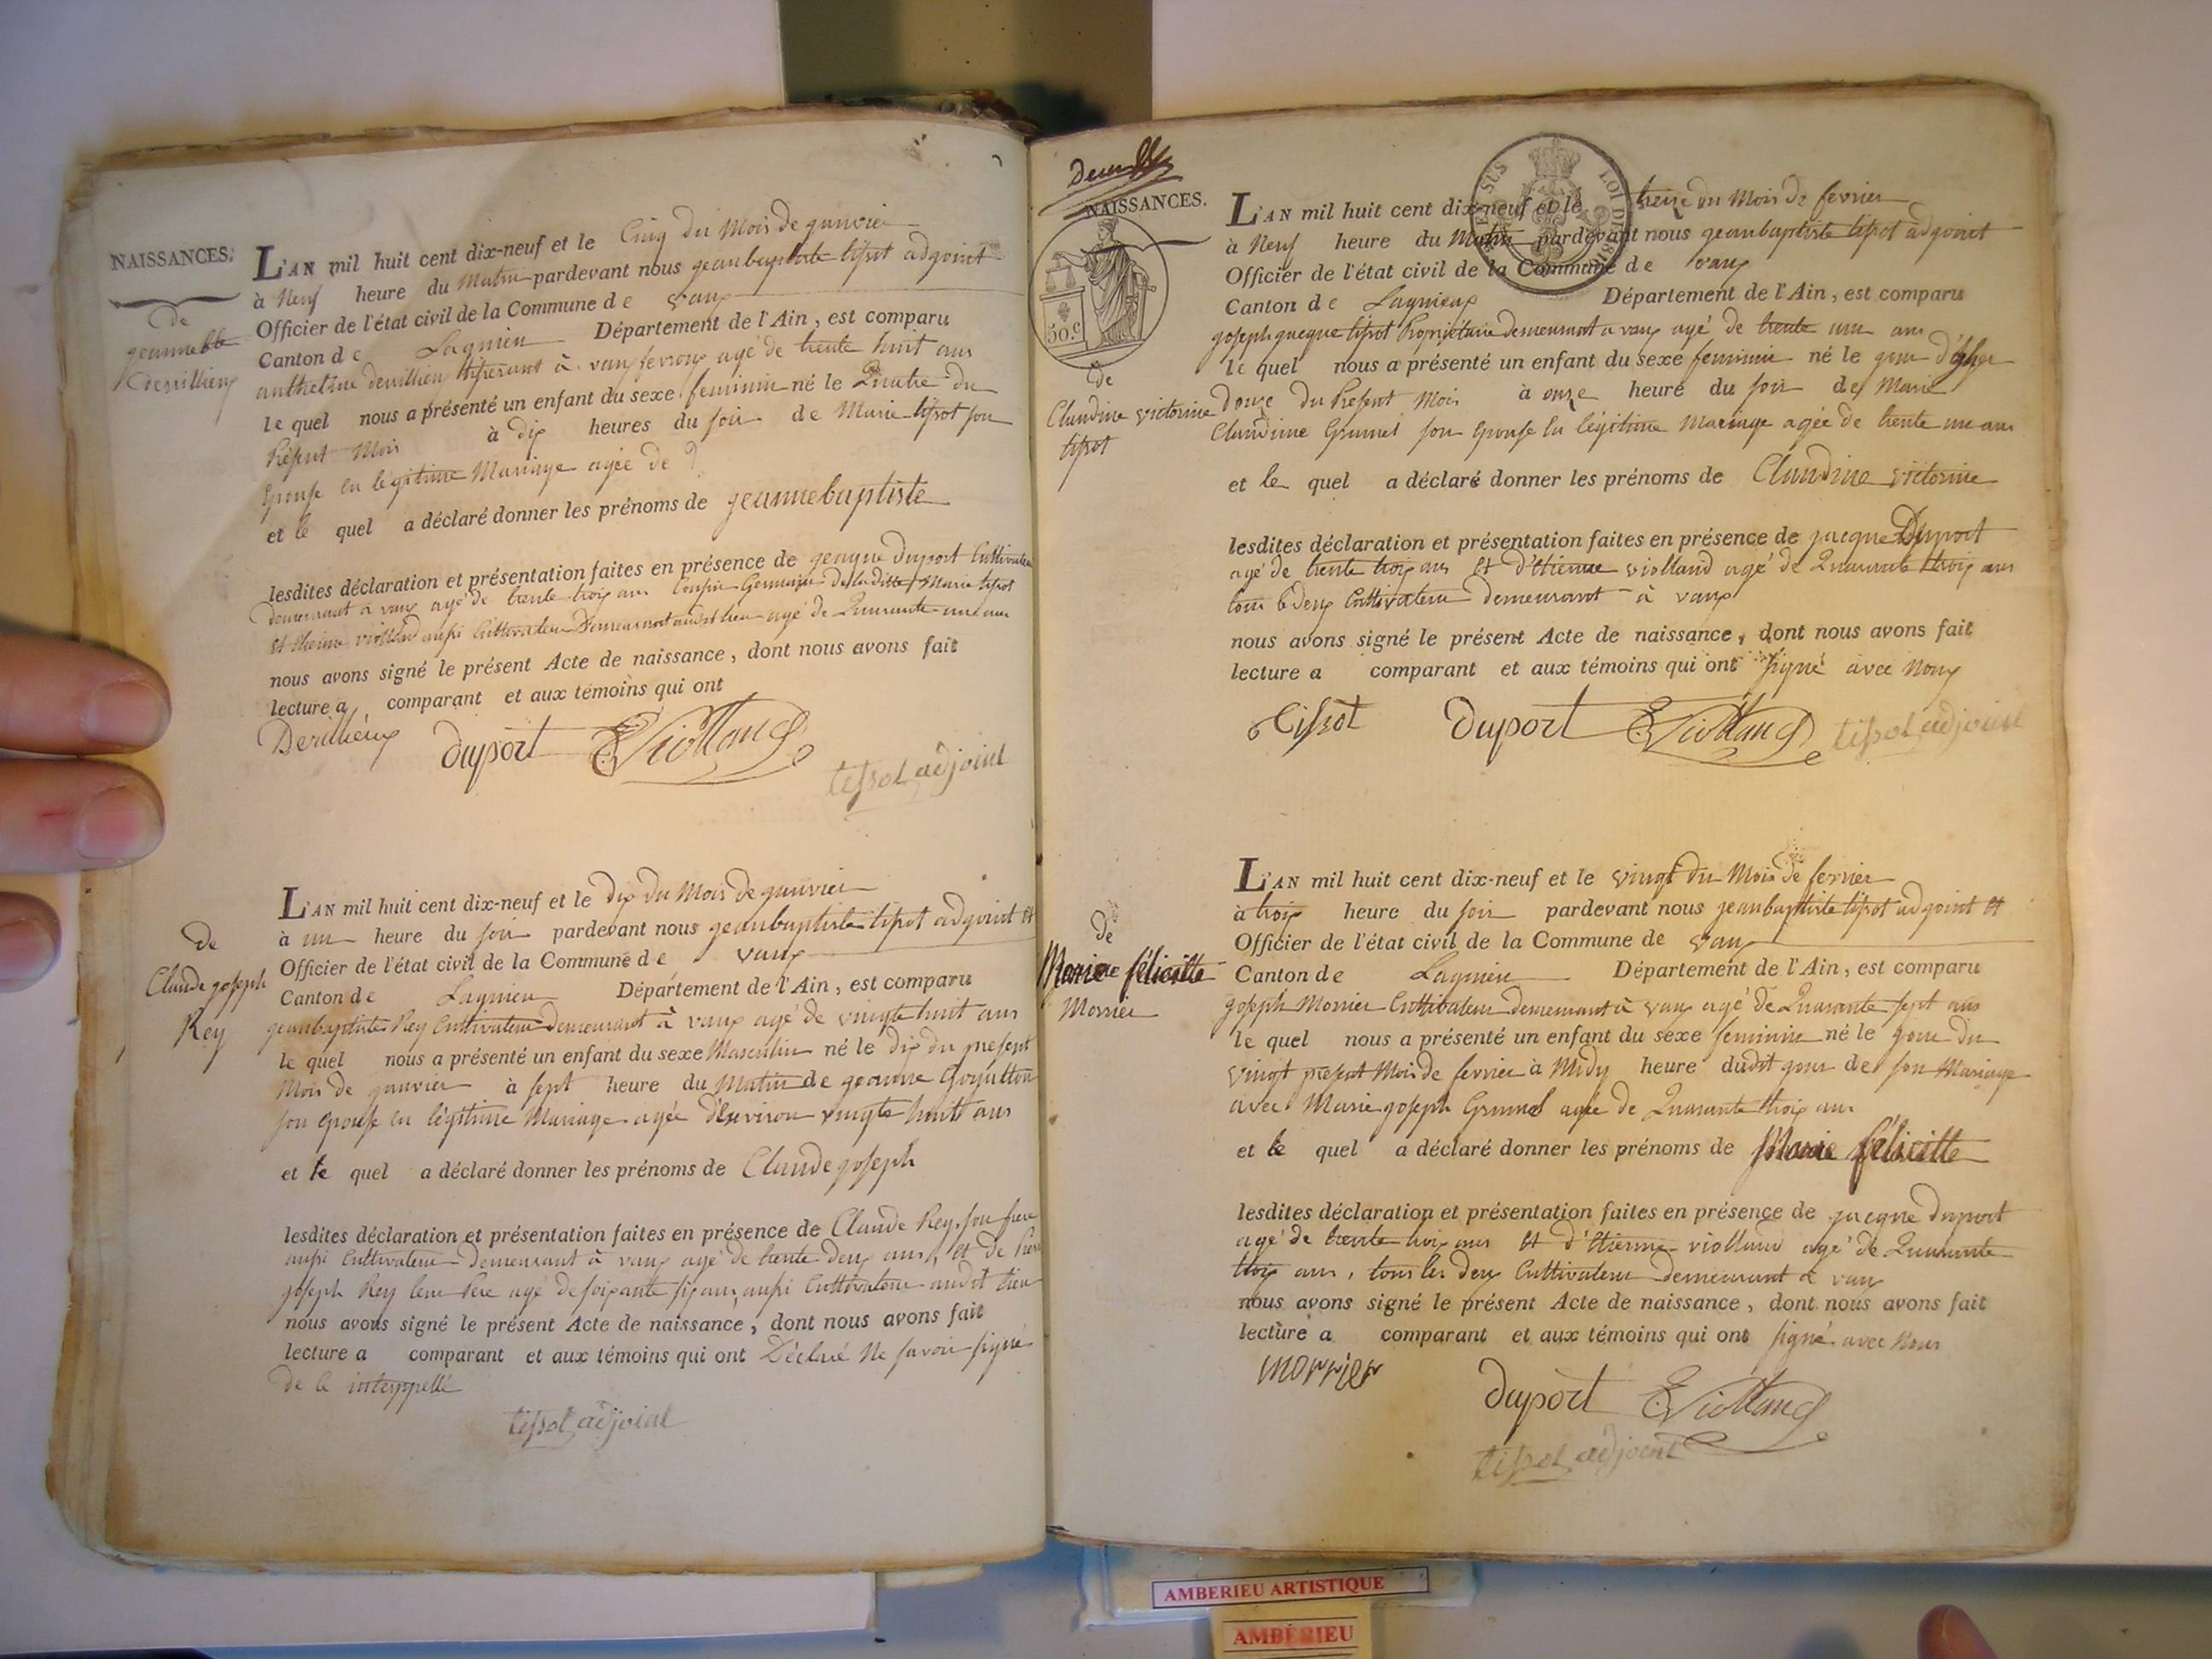 NAISSANCES.
de
jeannebte
Derillieux
L'AN mil huit cent dix-neuf et le Cinq du Mois de janvier
à Neuf heure du Matin pardevant nous jeanbaptiste tissot adjoint
Officier de l'état civil de la Commune de vaux
Canton de Lagnieu Département de l'Ain, est comparu
anthelme à vaux agé de trente huit ans
le quel nous a présenté un enfant du sexe feminin né le Quatre du
Présent Mois à dix heures du soir de Marie tissot son
Epouse en légitime Mariage agée de
et le quel a déclaré donner les prénoms de jeannebaptiste
lesdites déclaration et présentation faites en présence de jacque duport Cultivateur
demeurant à vaux agé de trente trois ans Cousin Germain de laditte Marie tissot
et Etienne violland aussi Cultivateur Demeurant audit lieu agé de Quarante ans
nous avons signé le présent Acte de naissance, dont nous avons fait
lecture a comparant et aux témoins qui ont
Derillieux duport EViolland
tissot adjoint
de
Claude joseph
Rey
L'AN mil huit cent dix-neuf et le dix du Mois de janvier
à un heure du soir pardevant nous jeanbaptiste tissot adjoint et
Officier de l'état civil de la Commune de vaux
Canton de Lagnieu Département de l'Ain, est comparu
jeanbaptiste Rey Cultivateur demeurant à vaux agé de vingte huit ans
le quel nous a présenté un enfant du sexe Masculin né le dix du présent
Mois de janvier à sept heure du Matin de jeanne
son Epouse en légitime Mariage agée d'Environ vingte huit ans
et le quel a déclaré donner les prénoms de Claude joseph
lesdites déclaration et présentation faites en présence de Claude Rey, son frere
aussi Cultivateur demeurant à vaux agé de trente deux ans, et de Pierre
joseph Rey leur Pere agé de soixante six ans, aussi Cultivateur audit lieu
nous avons signé le présent Acte de naissance, dont nous avons fait
lecture a comparant et aux témoins qui ont Déclaré Ne savoir signé
de ce interppellé
tissot adjoint
NAISSANCES.
50.c
de
Claudine victorine
tissot
L'AN mil huit cent dix-neuf et le treize du Mois de fevrier
à Neuf heure du Matin pardevant nous jeanbaptiste tissot adjoint
Officier de l'état civil de la Commune de vaux
Canton de Lagnieux Département de l'Ain, est comparu
joseph jacque tissot Proprietaire demeurant a vaux agé de trente un ans
le quel nous a présenté un enfant du sexe feminin né le jour d'hyer
douze du Présent Mois à onze heure du soir de Marie
Claudine Grumel son Epouse en légitime Mariage agée de trente un ans
et le quel a déclaré donner les prénoms de Claudine victorine
lesdites déclaration et présentation faites en présence de jacque Duport
agé de trente trois ans et d'Etienne violland agé de Quarante trois ans
tous le deux Cultivateur demeurant à vaux
nous avons signé le présent Acte de naissance, dont nous avons fait
lecture a comparant et aux témoins qui ont signé avec Nous
Tissot duport EViolland tissot adjoint
de
Marie félicitte
Monnier
L'AN mil huit cent dix-neuf et le vingt du Mois de fevrier
à trois heure du soir pardevant nous jeanbaptiste tissot adjoint et
Officier de l'état civil de la Commune de vaux
Canton de Lagnieu Département de l'Ain, est comparu
joseph Monnier Cultivateur demeurant à vaux agé de Quarante sept ans
le quel nous a présenté un enfant du sexe feminin né le jour du
vingt présent Mois de fevrier à Midy heure dudit jour de son Mariage
avec Marie joseph Grumel agée de Quarante trois ans
et le quel a déclaré donner les prénoms de Marie félicitte
lesdites déclaration et présentation faites en présence de jacque duport
agé de trente trois ans et d'Etienne violland agé de Quarante
trois ans, tous les deux Cultivateur demeurant à vaux
nous avons signé le présent Acte de naissance, dont nous avons fait
lecture a comparant et aux témoins qui ont signé avec nous
monnier duport EViolland
tissot adjoint
AMBERIEU ARTISTIQUE
AMBÉRIEU